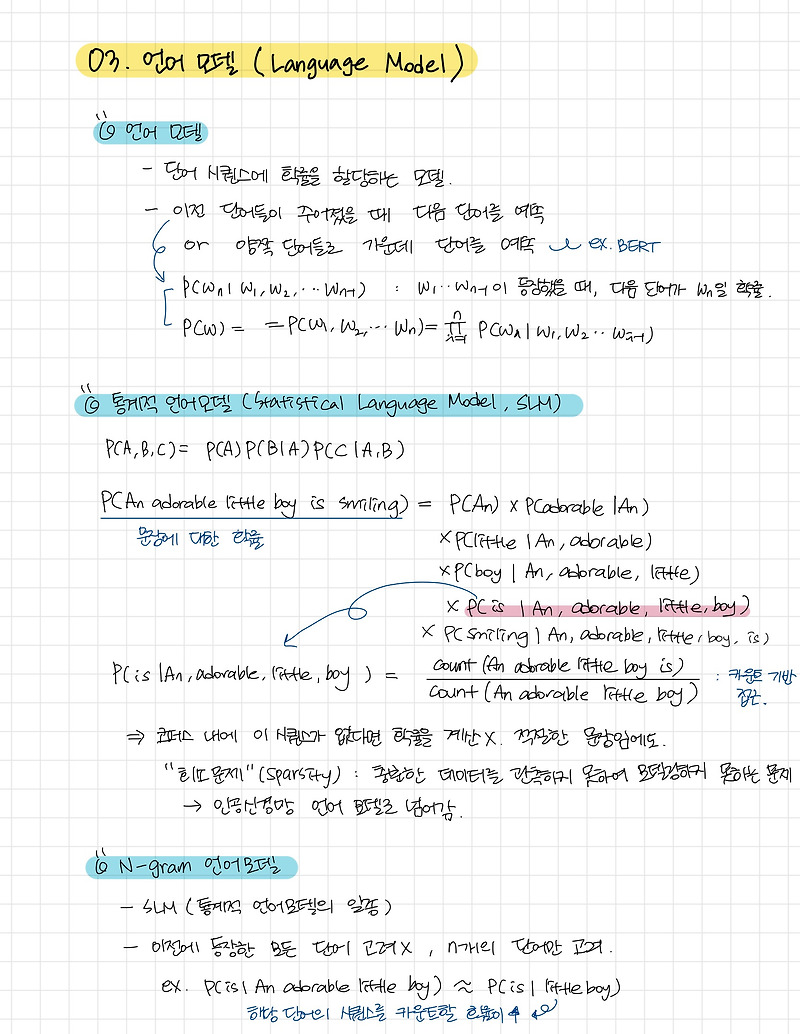 03. 언어 모델 (Language Model)
언어 모델
- 단어 시퀀스에 확률을 할당하는 모델.
- 이전 단어들이 주어졌을 때 다음 단어를 예측
or 양쪽 단어들로 가운데 단어를 예측 ex. BERT
P(wn | w1, w2, ... wn-1) : w1...wn-1이 등장했을 때, 다음 단어가 wn일 확률.
P(w) = = P(w1, w2, ... wn) = ∏ⁿᵢ₌₁ P(wn | w1, w2 ... wi-1)
통계적 언어모델 (Statistical Language Model, SLM)
P(A,B,C) = P(A)P(B|A)P(C|A,B)
P(An adorable little boy is smiling) = P(An) × P(adorable | An)
문장에 대한 확률
× P(little | An, adorable)
× P(boy | An, adorable, little)
× P(is | An, adorable, little, boy)
× P(smiling | An, adorable, little, boy, is)
P(is | An, adorable, little, boy) = count(An adorable little boy is) / count(An adorable little boy) : 카운트 기반
접근.
⇒ 코퍼스 내에 이 시퀀스가 없다면 확률을 계산 X. 적절한 문장임에도.
"희소문제" (sparsity) : 충분한 데이터를 관측하지 못하여 모델링하지 못하는 문제
→ 인공신경망 언어 모델로 넘어감.
N-gram 언어모델
- SLM (통계적 언어모델의 일종)
- 이전에 등장한 모든 단어 고려 X, n개의 단어만 고려.
ex. P(is | An adorable little boy) ≈ P(is | little boy)
해당 단어의 시퀀스를 카운트할 확률이 ↑